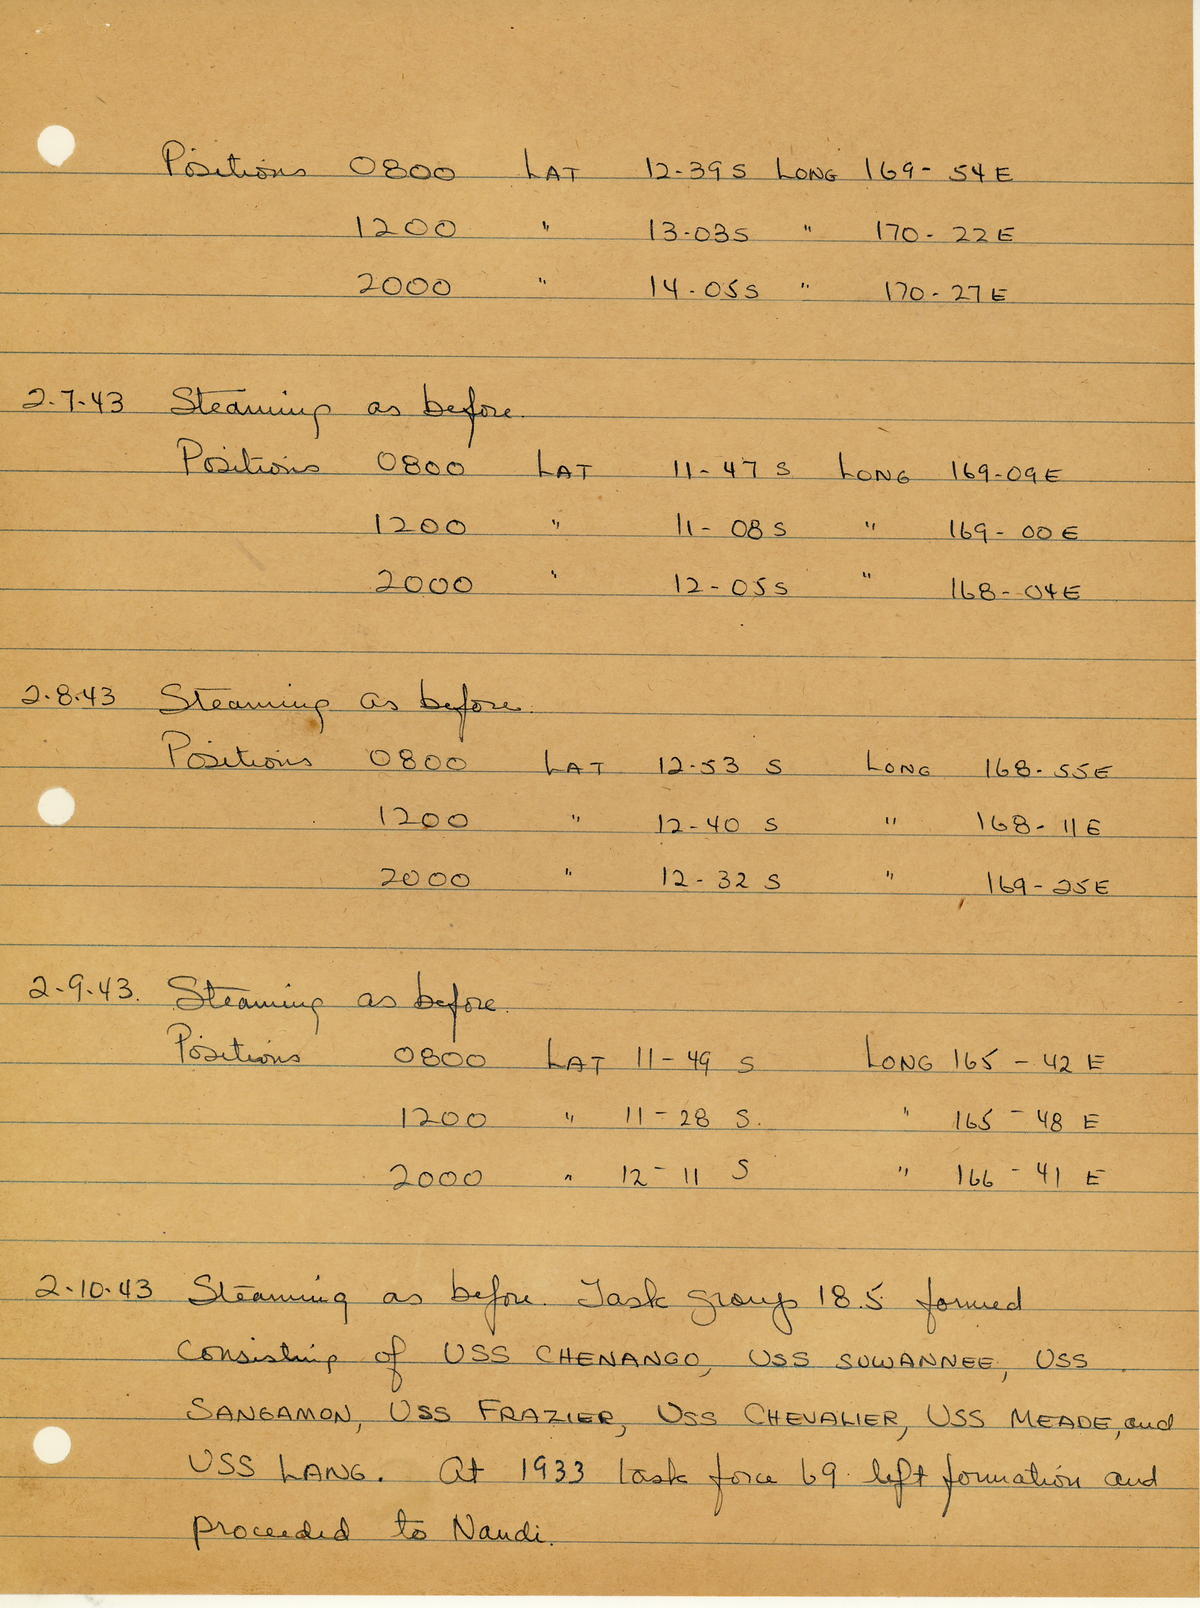 Positions 0800 LAT 12-39 S LONG 169-54 E
1200 " 13-03 S " 170-22 E
2000 " 14-05 S " 170-27 E
2-7-43 Steaming as before.
Positions 0800 LAT 11-47 S LONG 169-09 E
1200 " 11-08 S " 169-00 E
2000 " 12-05 S " 168-04 E
2-8-43 Steaming as before.
Positions 0800 LAT 12-53 S LONG 168-55 E
1200 " 12-40 S " 168-11 E
2000 " 12-32 S " 169-25 E
2-9-43. Steaming as before.
Positions 0800 LAT 11-49 S LONG 165-42 E
1200 " 11-28 S. " 165-48 E
2000 " 12-11 S " 166-41 E
2-10-43 Steaming as before. Task group 18.5 formed
consisting of USS CHENANGO, USS SUWANNEE, USS
SANGAMON, USS FRAZIER, USS CHEVALIER, USS MEADE, and
USS LANG. At 1933 task force 69 left formation and
proceeded to Nandi.